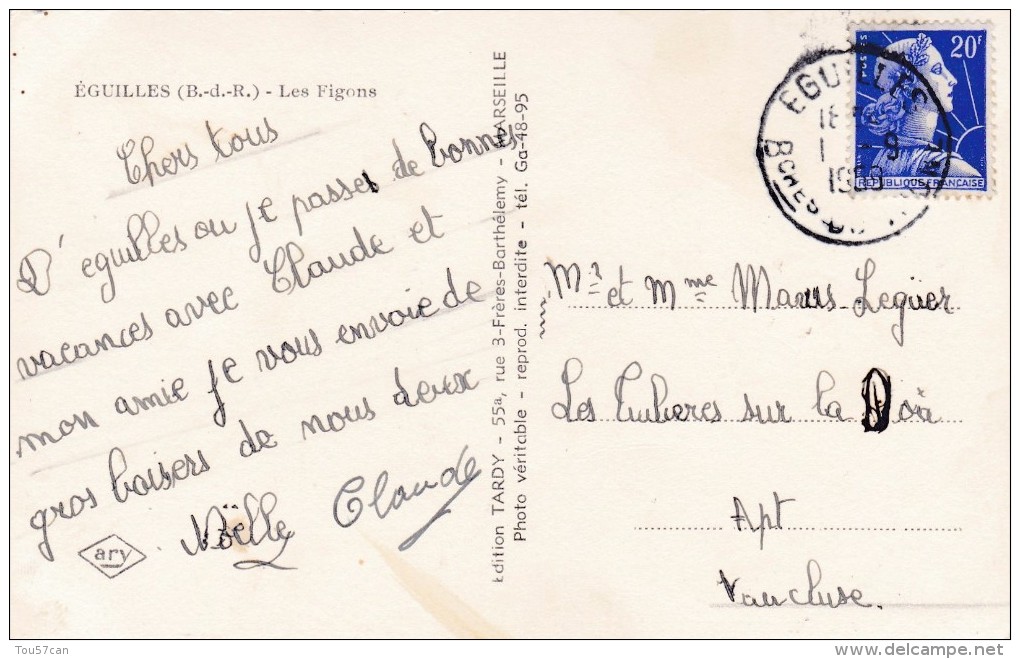 ÉGUILLES (B.-d.-R.) - Les Figons
Chers tous
D'eguilles ou je passes de bonnes
vacances avec Claude et
mon amie je vous envoie de
gros baisers de nous deux
Noëlle Claude
ary
Edition TARDY - 55a, rue 3-Frères-Barthélemy - MARSEILLE
Photo véritable - reprod. interdite - tél. Ga-48-95
EGUILLES
BCHES-DU
20F
REPUBLIQUE FRANÇAISE
Mr et Mme Marius Leguer
Les sur la
Apt
Vaucluse.
Tou57can
http://www.delcampe.net